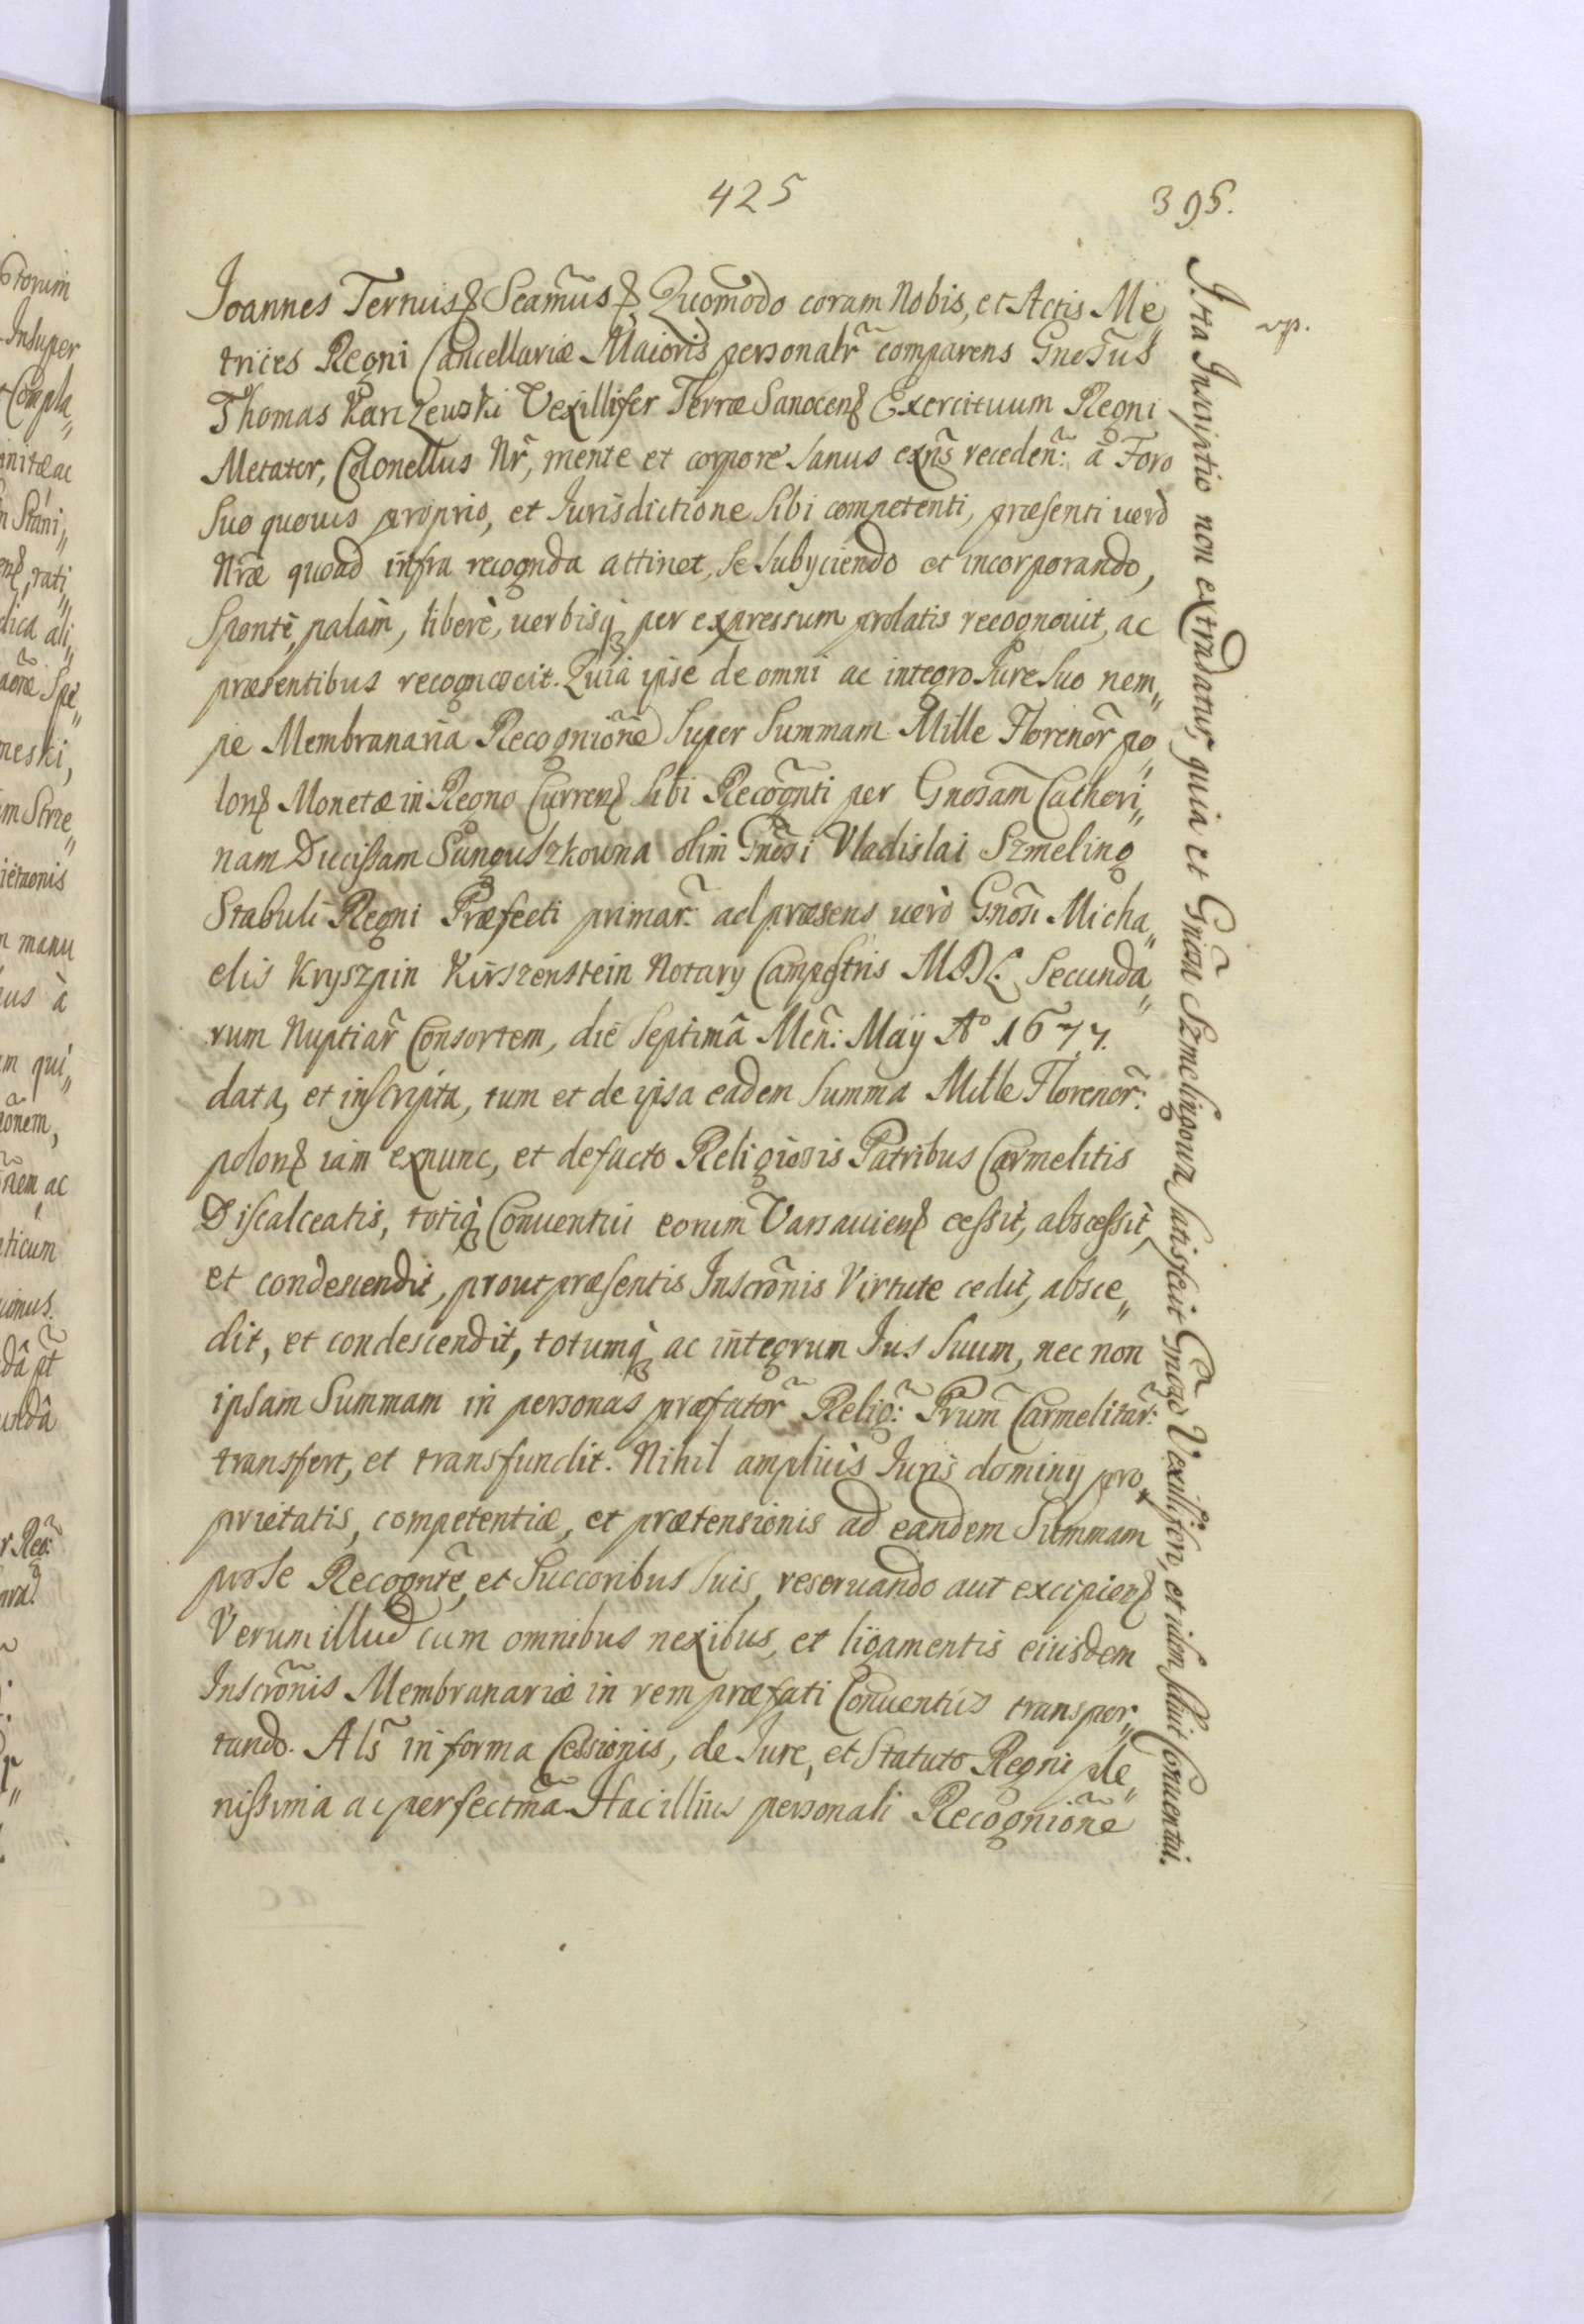 425
395.
Joannes Tertius etc. Seamus etc. Quomodo coram Nobis, et Actis Me„
trices Regni Cancellariæ Maioris personalr̃ comparens Gnosus
Thomas Karczewski Vexillifer Terræ Sanocens Exercituum Regni
Metator, Colonellus Nr̃, mente et corpore sanus exñs receden: à Foro
suo quovis proprio, et Jurisdictione sibi competenti, præsenti verò
Nræ quoad infra recognda attinet, se subyciendo et incorporando,
Spontè, palàm, liberè, verbisq per expressum prolatis recognouit, ac
præsentibus recognoscit. Quia ipse de omni ac integro Jure suo nem„
pe Membranaria Recognione super Summam Mille Florenor̃ po„
lons Monetæ in Regno Currens sibi Recognti per Gnosam Catheri„
nam Ducissam Sunguszkowna olim Gnosi Vladislai Szmeling
Stabuli Regni Præfecti primar̃. ad præsens verò Gnosi Micha„
elis Kryszpin Kirszenstein Notary Campestris M.D.L. Secunda„
rum Nuptiar̃ Consortem, die septimâ Meñ: Maÿ Aº 1677.
data, et inscripta, tum et de ipsa eadem summa Mille Florenor̃:
polons iam exnunc, et defacto Religiosis Patribus Carmelitis
Discalceatis, totiq Conuentui eorum Varsauiens cessit, abscessit,
et condescendit, prout præsentis Inscronis Virtute cedit, absce„
dit, et condescendit, totumq ac integrum Jus suum, nec non
ipsam Summam in personas præfator̃ Relig: Prum Carmelitar̃:
transfert, et transfundit. Nihil ampliùs Juris dominy pro„
prietatis, competentiæ, et prætensionis ad eandem Summam
pro se Recognte, et Succoribus suis, reseruando aut excipiens
Verum illud cum omnibus nexibus, et ligamentis eiusdem
Inscronis Membranariæ in rem præfati Conuentûs transpor„
tando. Als in forma Cessionis, de Jure, et Statuto Regni ple„
nissima ac perfectma. Hac illius personali Recognione
Ista Inscriptio non extradatur, quia et Gnosa Szmelingowa satisfecit Gnoso Vexillifero, et idem soluit Conuentui.
vp.